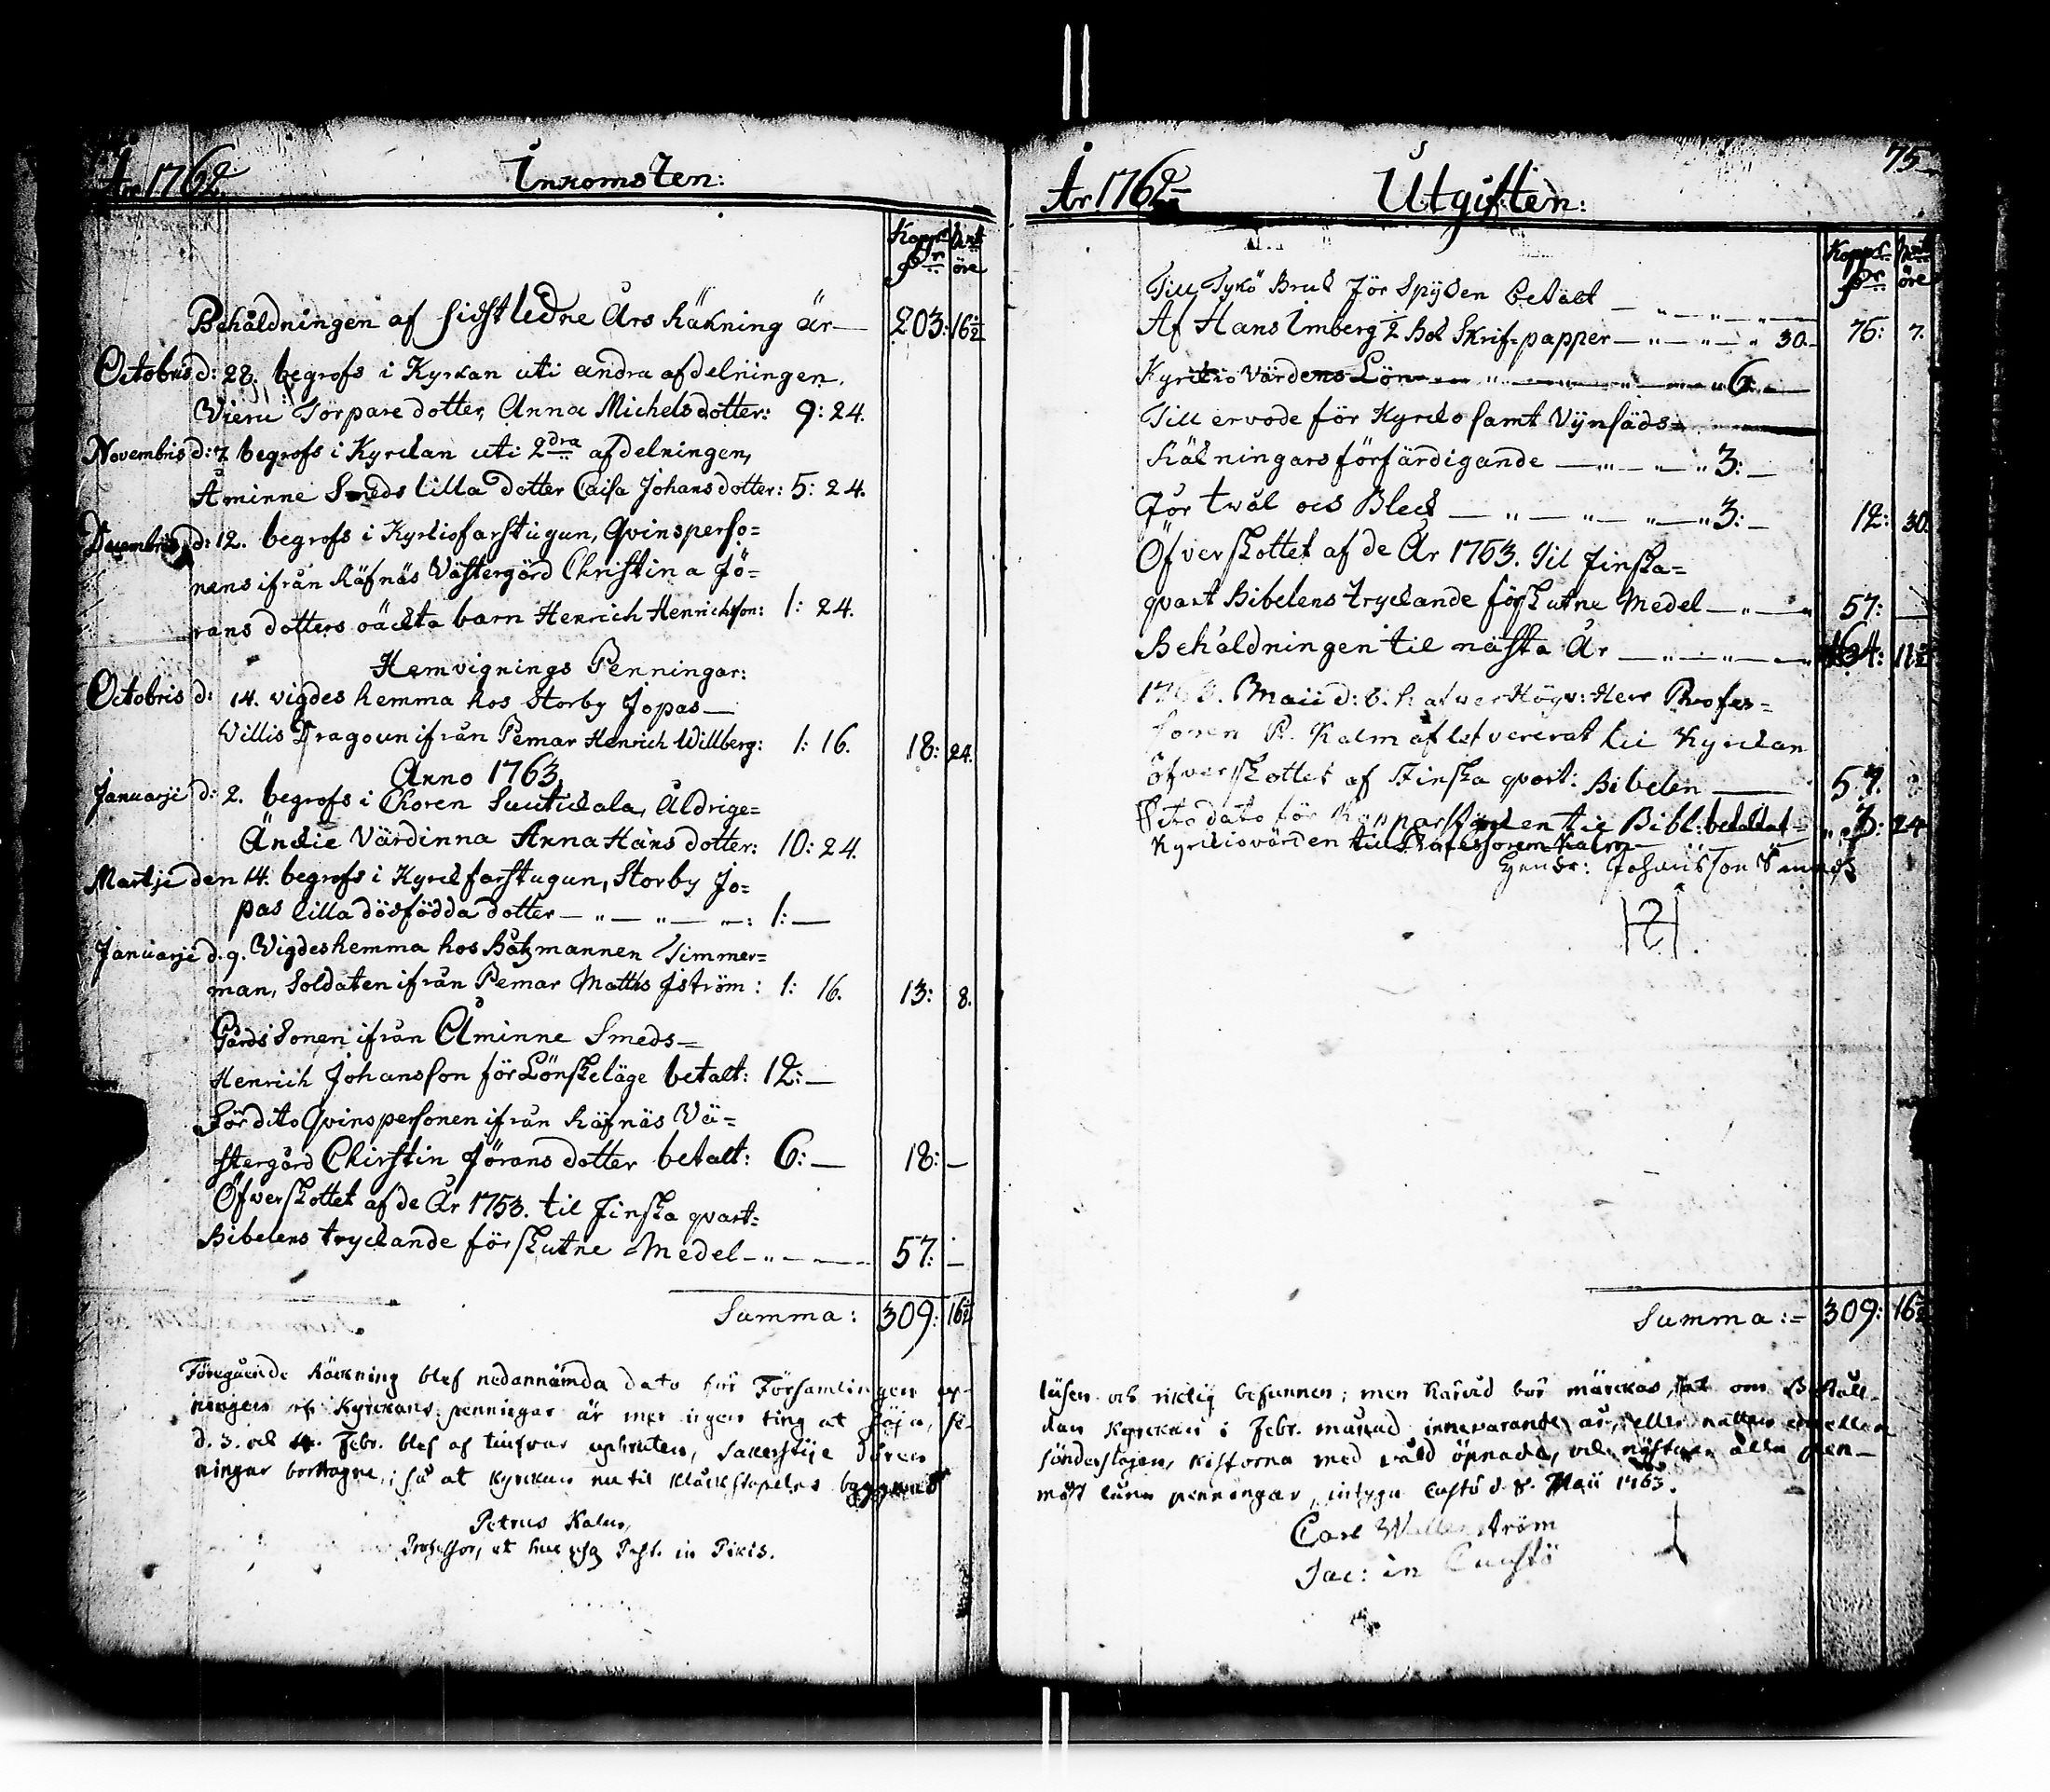 År 1762 Inkomsten:
Koppr Dr Smt öre
Behåldningen af sidstledne Års Räkning är — 203: 16½
Octobris d: 28. begrofs i Kyrkan uti andra afdelningen,
Wieru Torpare dotter, Anna Michelsdotter: 9: 24.
Novembris d: 7. begrofs i Kyrckan uti 2dra afdelningen,
Åminne Smeds lilla dotter Caisa Johansdotter: 5: 24.
Decembris d: 12. begrofs i Kyrkiofarstugun, Qvinsperso=
nens ifrån Räfnäs Västergård Christina Jö=
rans dotters oäckta barn Henrich Henrichsson: 1: 24.
Hemvignings Penningar:
Octobris d: 14. vigdes hemma hos Storby Jopas —
Willis Dragoun ifrån Pemar Henrich Willberg: 1: 16. 18: 24.
Anno 1763.
Januarii d: 2. begrofs i Choren Suutickala, Åldrige=
Änckie Värdinna Anna Hans dotter: 10: 24.
Martji den 14. begrofs i Kyrckfarstugun, Storby Jo=
pas lilla dödfödda dotter — " — " — " —: 1: —
Januarji d. 9. Wigdes hemma hos Båtzmannen Timmer=
man, Soldaten ifrån Pemar Matths Iström: 1: 16. 13: 8.
Gårds Sonen ifrån Åminne Smeds=
Henrich Johansson för Lönskeläge betalt: 12: —
För dito Qvinspersonen ifrån Räfnäs Vä=
stergård Chirstin Jörans dotter betalt: 6: — 18: —
Öfverskottet af de År 1753. til Finska qvart=
Bibelens tryckande förskutne Medel — " — — — 57: —
Summa: 309: 16½
Föregående Räckning blef nedannämda dato för Församlingen up-
ningen och Kyrckans penningar är mer ingen ting at säja,
d. 3. och 4. Febr. blef af tiufvar upbruten,
ningar borttagne; så at Kyrckan nu til Klåckstapelns byggnad
Petrus Kalm,
Professor, et Past. in Pikis.
År 1762 Utgiften: 75
Koppr Dr Smt öre
Till Tykö Bruk för Spijken betalt — " — " —
Af Hans Imberg 2 Bok Skrif-papper — " — " — " 30. 75: 7.
Kyrckio Värdens Lön — " — " — " 6: —
Till ervode för Kyrckio samt Vijnsäds=
Räkningars förfärdigande — " — " — " 3: —
För twål och Bleck — " — " — " — " 3: — 12: 30.
Öfverskottet af de År 1753. Til Finska=
qvart Bibelens tryckande förskutne Medel — " — 57: —
Behåldningen til nästa År — " — " — 164: 11½
Maii d: 8. hafver Högv: Herr Profes=
soren P. Kalm aflefvererat till Kyrckan
öfverskottet af Finska qvart: Bibelen —
Dito dato för Kopparstycken til Bibl: betaltat 24
Kyrckiovärden till Professoren Kalm
Hendr: Johansson
HS
Summa: = 309: 16½
läsen och riktig befunnen; men härvid bör märckas, at om Behåll-
dan Kyrckan i Febr. månad innevarande år,
sönderslagen, kistorna med våld öpnade, och nästan alla pen-
måst låna penningar, intyga Custö d. 8. Maii 1763.
Carl Wallenström
Sac: in Cuustö